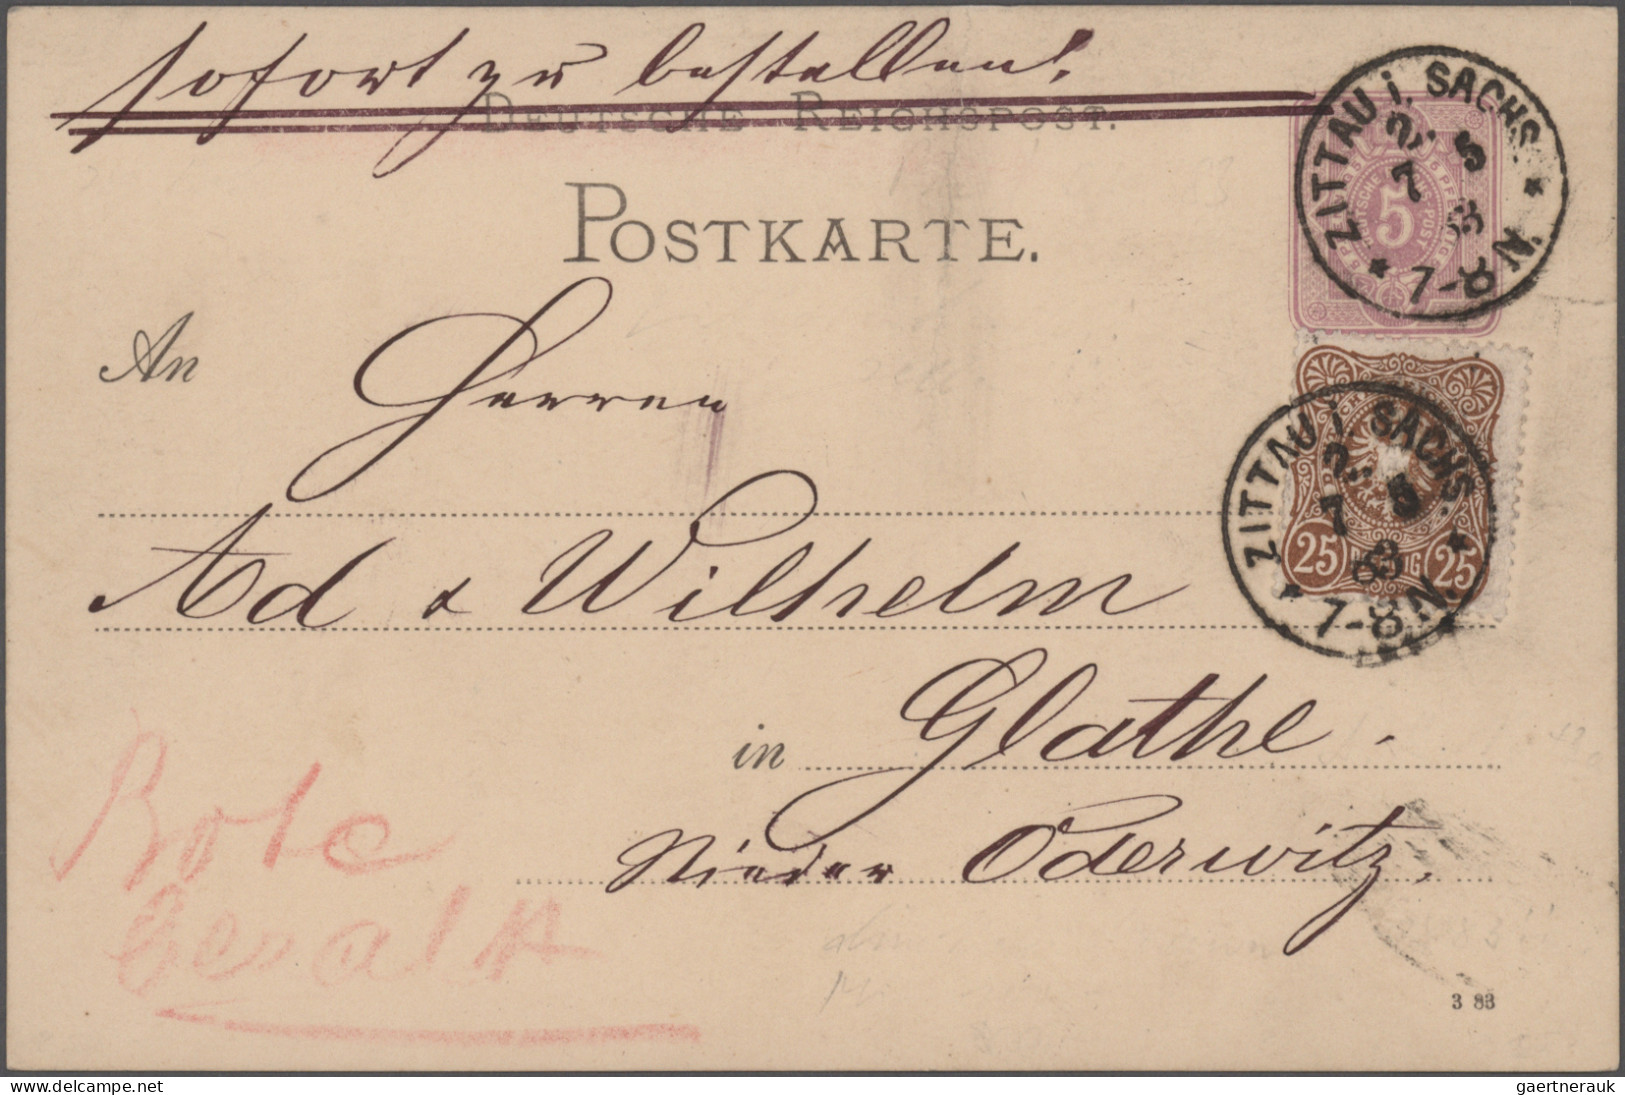 sofort zu bestellen!
DEUTSCHE REICHSPOST.
POSTKARTE.
ZITTAU i. SACHS.
7 5
83
7-8 N.
5
An Herren
Ad & Wilhelm
ZITTAU i. SACHS.
7 5
83
7-8 N.
25 25
in Glathe.
Nieder Oderwitz,
Bote
3 83
www.delcampe.net
gaertnerauk